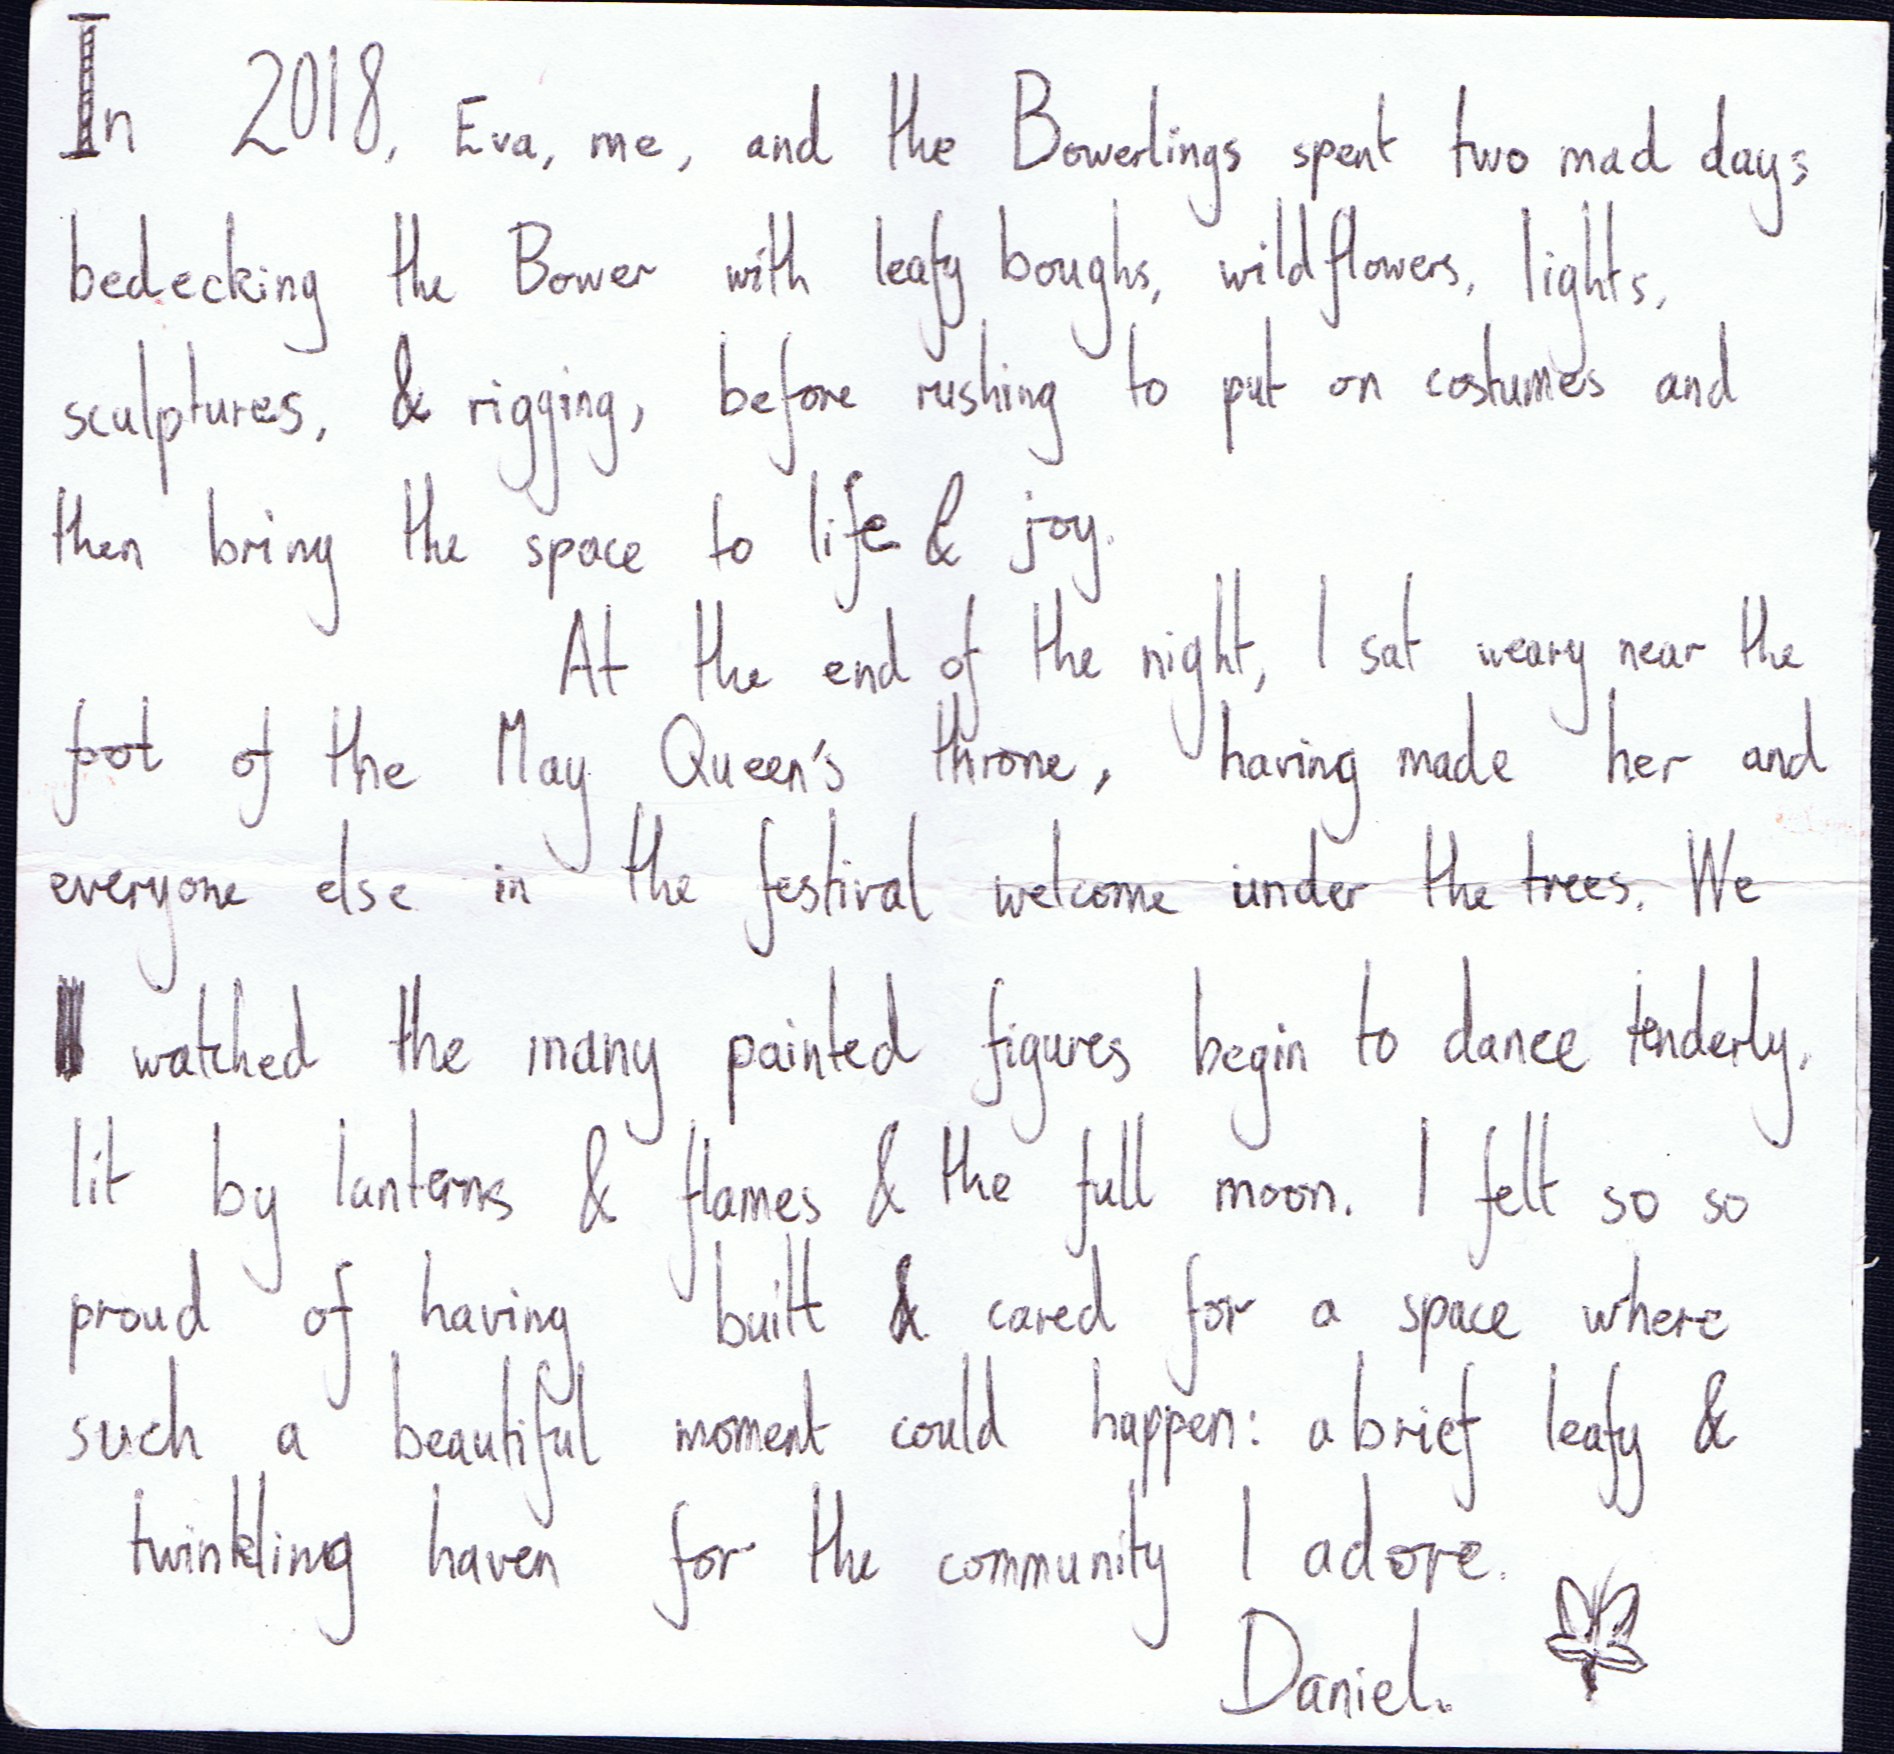 In 2018, Eva, me, and the Bowerlings spent two mad days
bedecking the Bower with leafy boughs, wildflowers, lights,
sculptures, & rigging, before rushing to put on costumes and
then bring the space to life & joy.
At the end of the night, I sat weary near the
foot of the May Queen's throne, having made her and
everyone else in the festival welcome under the trees. We
watched the many painted figures begin to dance tenderly,
lit by lanterns & flames & the full moon. I felt so so
proud of having built & cared for a space where
such a beautiful moment could happen: a brief leafy &
twinkling haven for the community I adore.
Daniel.